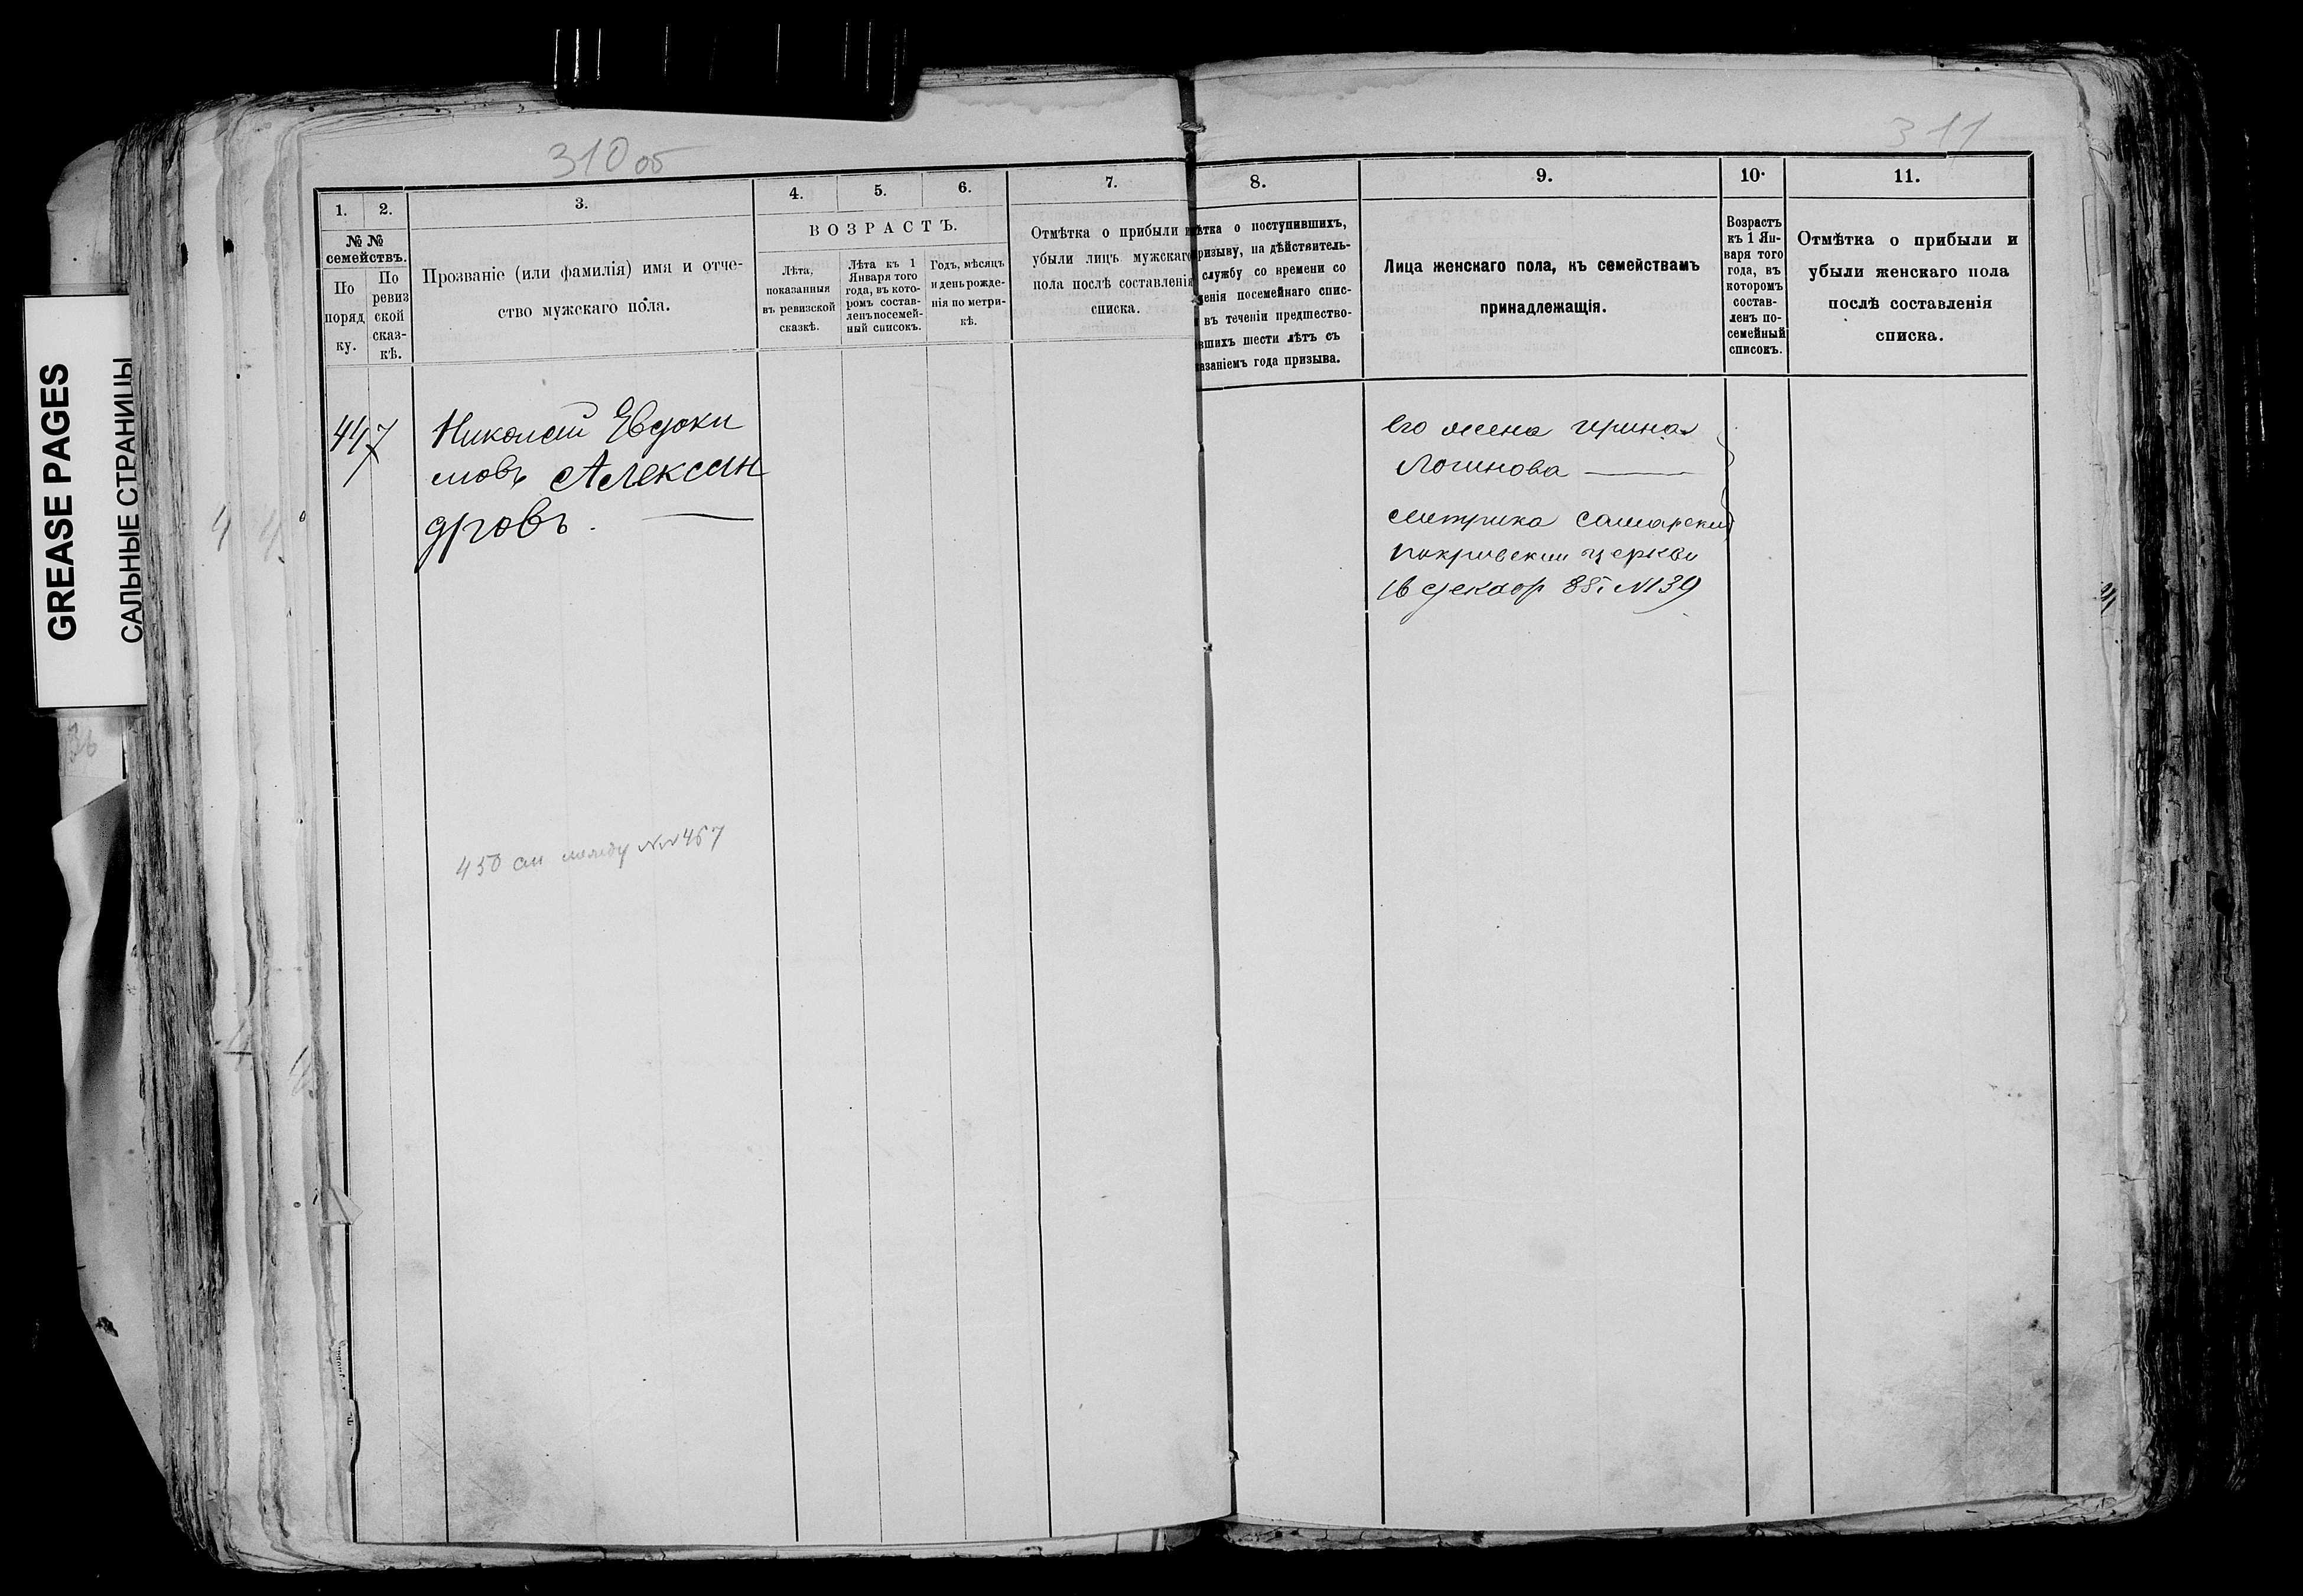 GREASE PAGES
САЛЬНЫЕ СТРАНИЦЫ
310 об
311
1.
2.
3.
4.
5.
6.
7.
8.
9.
10.
11.
№ №
семействъ.
По
поряд
ку.
По
ревиз
ской
сказ-
кѣ.
Прозваніе (или фамилія) имя и отче-
ство мужскаго пола.
ВОЗРАСТЪ.
Лѣта,
показанныя
въ ревизской
сказкѣ.
Лѣта къ 1
Января того
года, въ кото-
ромъ состав-
ленъ посемей-
ный списокъ.
Годъ, мѣсяцъ
и день рожде-
нія по метри-
кѣ.
Отмѣтка о прибыли и
убыли лицъ мужскаго
пола послѣ составленія
списка.
ѣтка о поступившихъ,
ризыву, на дѣйствитель-
службу со времени со
ленія посемейнаго спис-
въ теченіи предшество-
вшихъ шести лѣтъ съ
казаніемъ года призыва.
Лица женскаго пола, къ семействамъ
принадлежащія.
Возрастъ
къ 1 Ян-
варя того
года, въ
которомъ
состав-
ленъ по-
семейный
списокъ.
Отмѣтка о прибыли и
убыли женскаго пола
послѣ составленія
списка.
447
Николай Евдоки
мовъ Алексан
дровъ.
его жена Ирина
Логинова
метрика самарский
покровский церкви
16 декабр 88 г №139
450 см между №№ 457